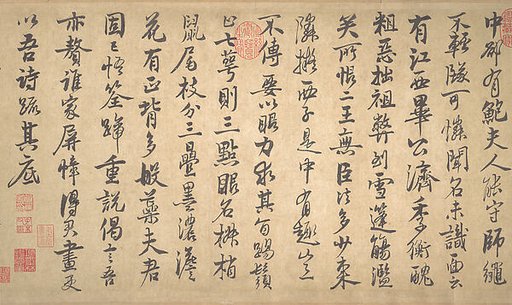 中卻有鮑夫人能守師繩
不輕墜可憐聞名未識面云
有江西畢公濟季衡醜
粗惡拙祖弊到雪篷觴濫
矣所恨二王無臣法多少東
鄰擬西子是中有趣豈
不傳要以眼力求其旨踢鬚
止七萼則三點眼名椒梢
鼠尾枝分三疊墨濃淡
花有正背多般蘂夫君
固已悟筌蹄重說偈言吾
亦贅誰家屏幛得君畫更
以吾詩疏其底